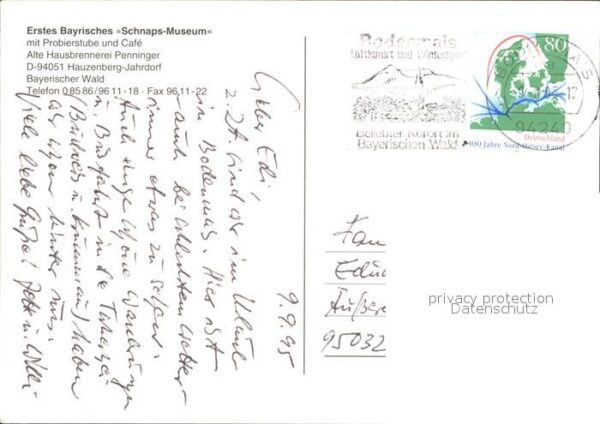 Erstes Bayrisches »Schnaps-Museum«
mit Probierstube und Café
Alte Hausbrennerei Penninger
D-94051 Hauzenberg-Jahrdorf
Bayerischer Wald
Telefon 0 85 86/96 11-18 · Fax 96 11-22
Bodenmais
Luftkurort und Wintersport
Beliebter Kurort im
Bayerischen Wald
80
BODENMAIS
94249
Deutschland
100 Jahre Nord-Ostsee-Kanal
9.9.95
Lieber Edi,
z. Zt. sind wir im Urlaub
in Bodenmais. Hier ist
auch bei schlechtem Wetter
immer etwas zu sehen.
Auch einige schöne Wanderungen
u. Busfahrt in die
haben
wir schon hinter uns.
Viele liebe Grüße!
Fam
Edu
Äußere
95032
privacy protection
Datenschutz